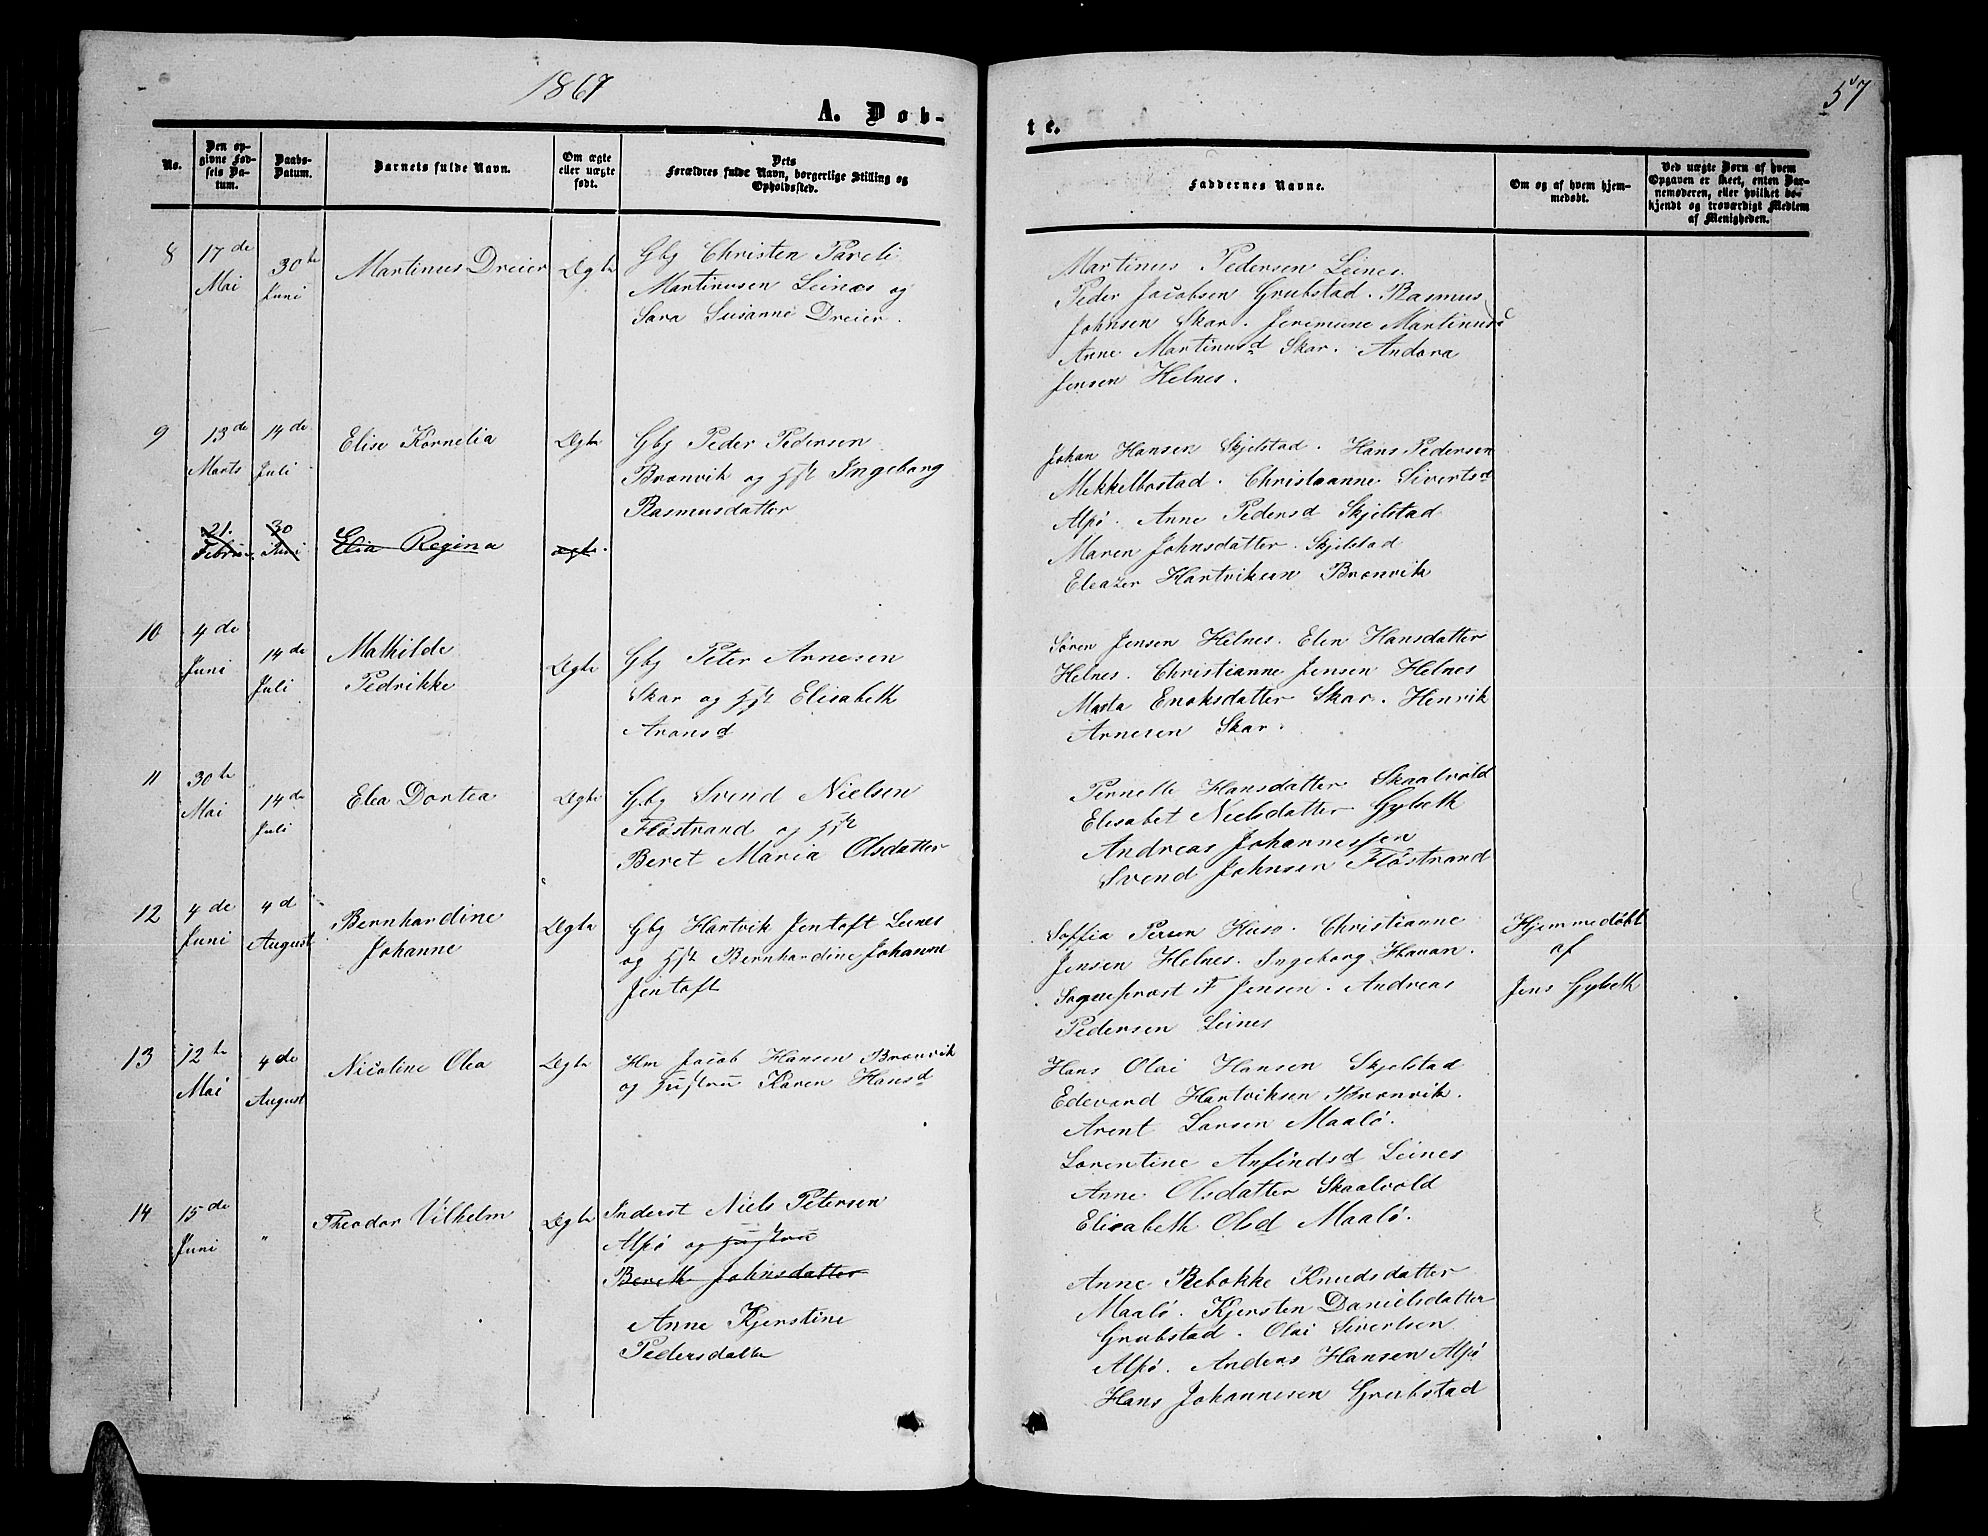 1867
57
A. Døb-
te.
No.
Den op-
givne Fød-
sels Da-
tum.
Daabs-
Datum.
Barnets fulde Navn.
Om ægte
eller uægte
født.
Dets
Forældres fulde Navn, borgerlige Stilling og
Opholdssted.
Faddernes Navne.
Om og af hvem hjem-
medøbt.
Ved uægte Børn af hvem
Opgaven er skeet, enten Bar-
nemoderen, eller hvilket be-
kjendt og troværdigt Medlem
af Menigheden.
8
17de
Mai
30te
Juni
Martinus Dreier
Ægte
Gbj Christen Pareli
Martinusen Leines og
Sara Susanne Dreier.
Martinus Pedersen Leines.
Peder Jacobsen Grubstad. Rasmus
Johnsen Skar. Jeremine Martinusd
Anne Martinusd Skar. Andora
Jensen Helnes.
9
13de
Marts
14de
Juli
Elise Kornelia
Ægte
Gbj Peder Pedersen
Brænvik og Hst Ingeborg
Rasmusdatter
Johan Hansen Skjelstad. Hans Pedersen
Mekkelbostad. Christianne Sivertsd
Alpø. Anne Pedersd Skjelstad
Maren Johnsdatter. Skjelstad
Eleazer Hartviksen Brænvik
21.
Februar
30
Juni
Elia Regina
ægte.
10
4de
Juni
14de
Juli
Mathilde
Pedrikke
Ægte
Gbj Peter Arnesen
Skar og Hst Elisabeth
Aronsd
Søren Jensen Helnes. Elen Hansdatter
Helnes. Christianne Jensen Helnes
Marta Enoksdatter Skar. Henrik
Arnesen Skar.
11
30te
Mai
14de
Juli
Elea Dortea
Ægte
Gbj Svend Nielsen
Fløstrand og Hst
Beret Maria Olsdatter
Pernelle Hansdatter Skaalvold
Elisabet Nielsdatter Gylseth
Andreas Johannessen
Svend Johnsen Fløstrand
12
4de
Juni
4d
August
Bernhardine
Johanne
Ægte
Gbj Hartvik Jentoft Leines
og Hst Bernhardine Johanne
Jentoft
Soffia Huso. Christianne
Jensen Helnes. Ingeborg Hanan.
Sognepræst F Jensen. Andreas
Pedersen Leines
Hjemmedøbt
af
Jens Gylseth
13
12te
Mai
4de
August
Nicoline Olea
Ægte
Hm Jacob Hansen Brænvik
og Hustru Karen Hansd
Hans Olai Hansen Skjelstad
Edevard Hartviksen Brænvik.
Arent Larsen Maalø.
Lorentine Anfindsd Leines
Anne Olsdatter Skaalvold
Elisabeth Olsd Maalø.
14
15de
Juni
"
Theodor Vilhelm
Ægte
Inderst Niels Petersen
Alpø og Hustru
Bereth Johnsdatter
Anne Kjerstine
Pedersdatter
Anne Rebekke Knudsdatter
Maalø. Kjersten Danielsdatter
Grubstad. Olai Sivertsen
Alpø. Anders Hansen Alpø
Hans Johannesen Grubstad